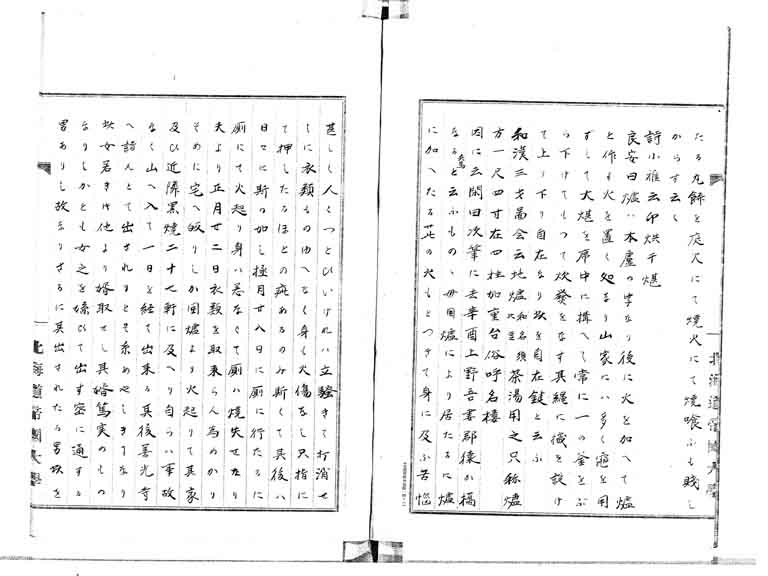 たる丸餅を庭火にて焼火にて焼喰ふも賤し
からす云く
詩小雅云卬烘于煁
良安曰爐ハ木盧の字なり後に火を加へて爐
と作も火を置く処なり山家にハ多く竈を用
すして大煁を席中に構へ常に一の釜をぶ
ら下けてもつて炊発をなす其縄に機を設け
て上り下り自在なり故を自在鍵と云ふ
和漢三才図会云地爐 茶湯用之只称爐
方一尺四寸在四柱加重台俗呼名櫓
因に云閑田次筆に去辛酉上野吾妻郡猿か橋
なると云ふもの 毋囲爐により居たるに爐
に加へたる 火もとつきて身に及ふ苦悩
甚しく人〱つとひいけれハ立騒きて打消せ
しに衣類ものゆへなく身も火傷なし只指に
て押したるほとの疵あるのみ斯くて其後ハ
日々に斯の如し極月廿八日に厠に行たるに
厠にて火起り身ハ恙なくて厠ハ焼失せたり
夫より正月廿二日衣類を取来らん為めかり
そめに宅へ皈りしか囲爐より火起りて其家
及ひ近隣黒焼二十七軒に及へり自らハ事故
なく山へ入て一日を経て出来る其後善光寺
へ詣んとて出されりとそ
故女若き は他より婿取せし其婿篤実のもの
なりしかとも女之を嫌ひて出す密に通する
男ありし故なりさるに其出されたる男故を
北海道帝国大学
北海道帝国大学